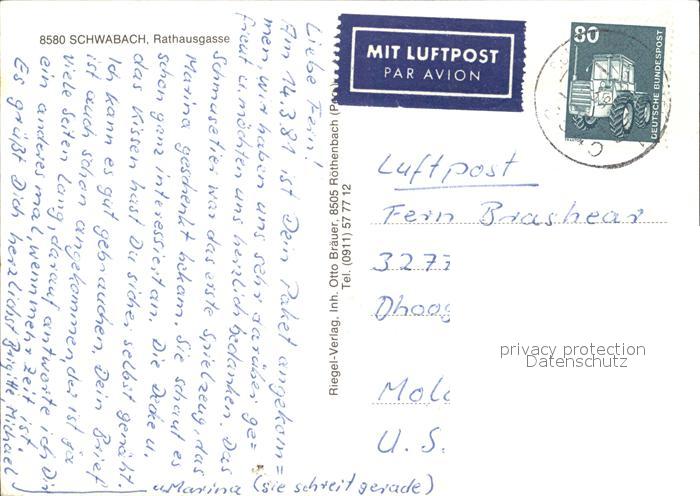 8580 SCHWABACH, Rathausgasse
Liebe Fern!
Am 14.3.81 ist Dein Paket angekom=
men, wir haben uns sehr darüber ge=
freut u. möchten uns herzlich bedanken. Das
Schmusetier war das erste Spielzeug, das
Marina geschenkt bekam. Sie schaut es
schon ganz interessiert an. Die Decke u.
das Kissen hast Du sicher selbst genäht.
Ich kann es gut gebrauchen. Dein Brief
ist auch schon angekommen, der ist ja
viele Seiten lang, darauf antworte ich Dir
ein anderes mal, wenn mehr Zeit ist.
Es grüßt Dich herzlichst Brigitte, Michael
u Marina (sie schreit gerade)
Riegel-Verlag, Inh. Otto Bräuer, 8505 Röthenbach
Tel. (0911) 57 77 12
MIT LUFTPOST
PAR AVION
80
DEUTSCHE BUNDESPOST
Luftpost
Fern Brashear
3277
Dhoog
U. S.
privacy protection
Datenschutz